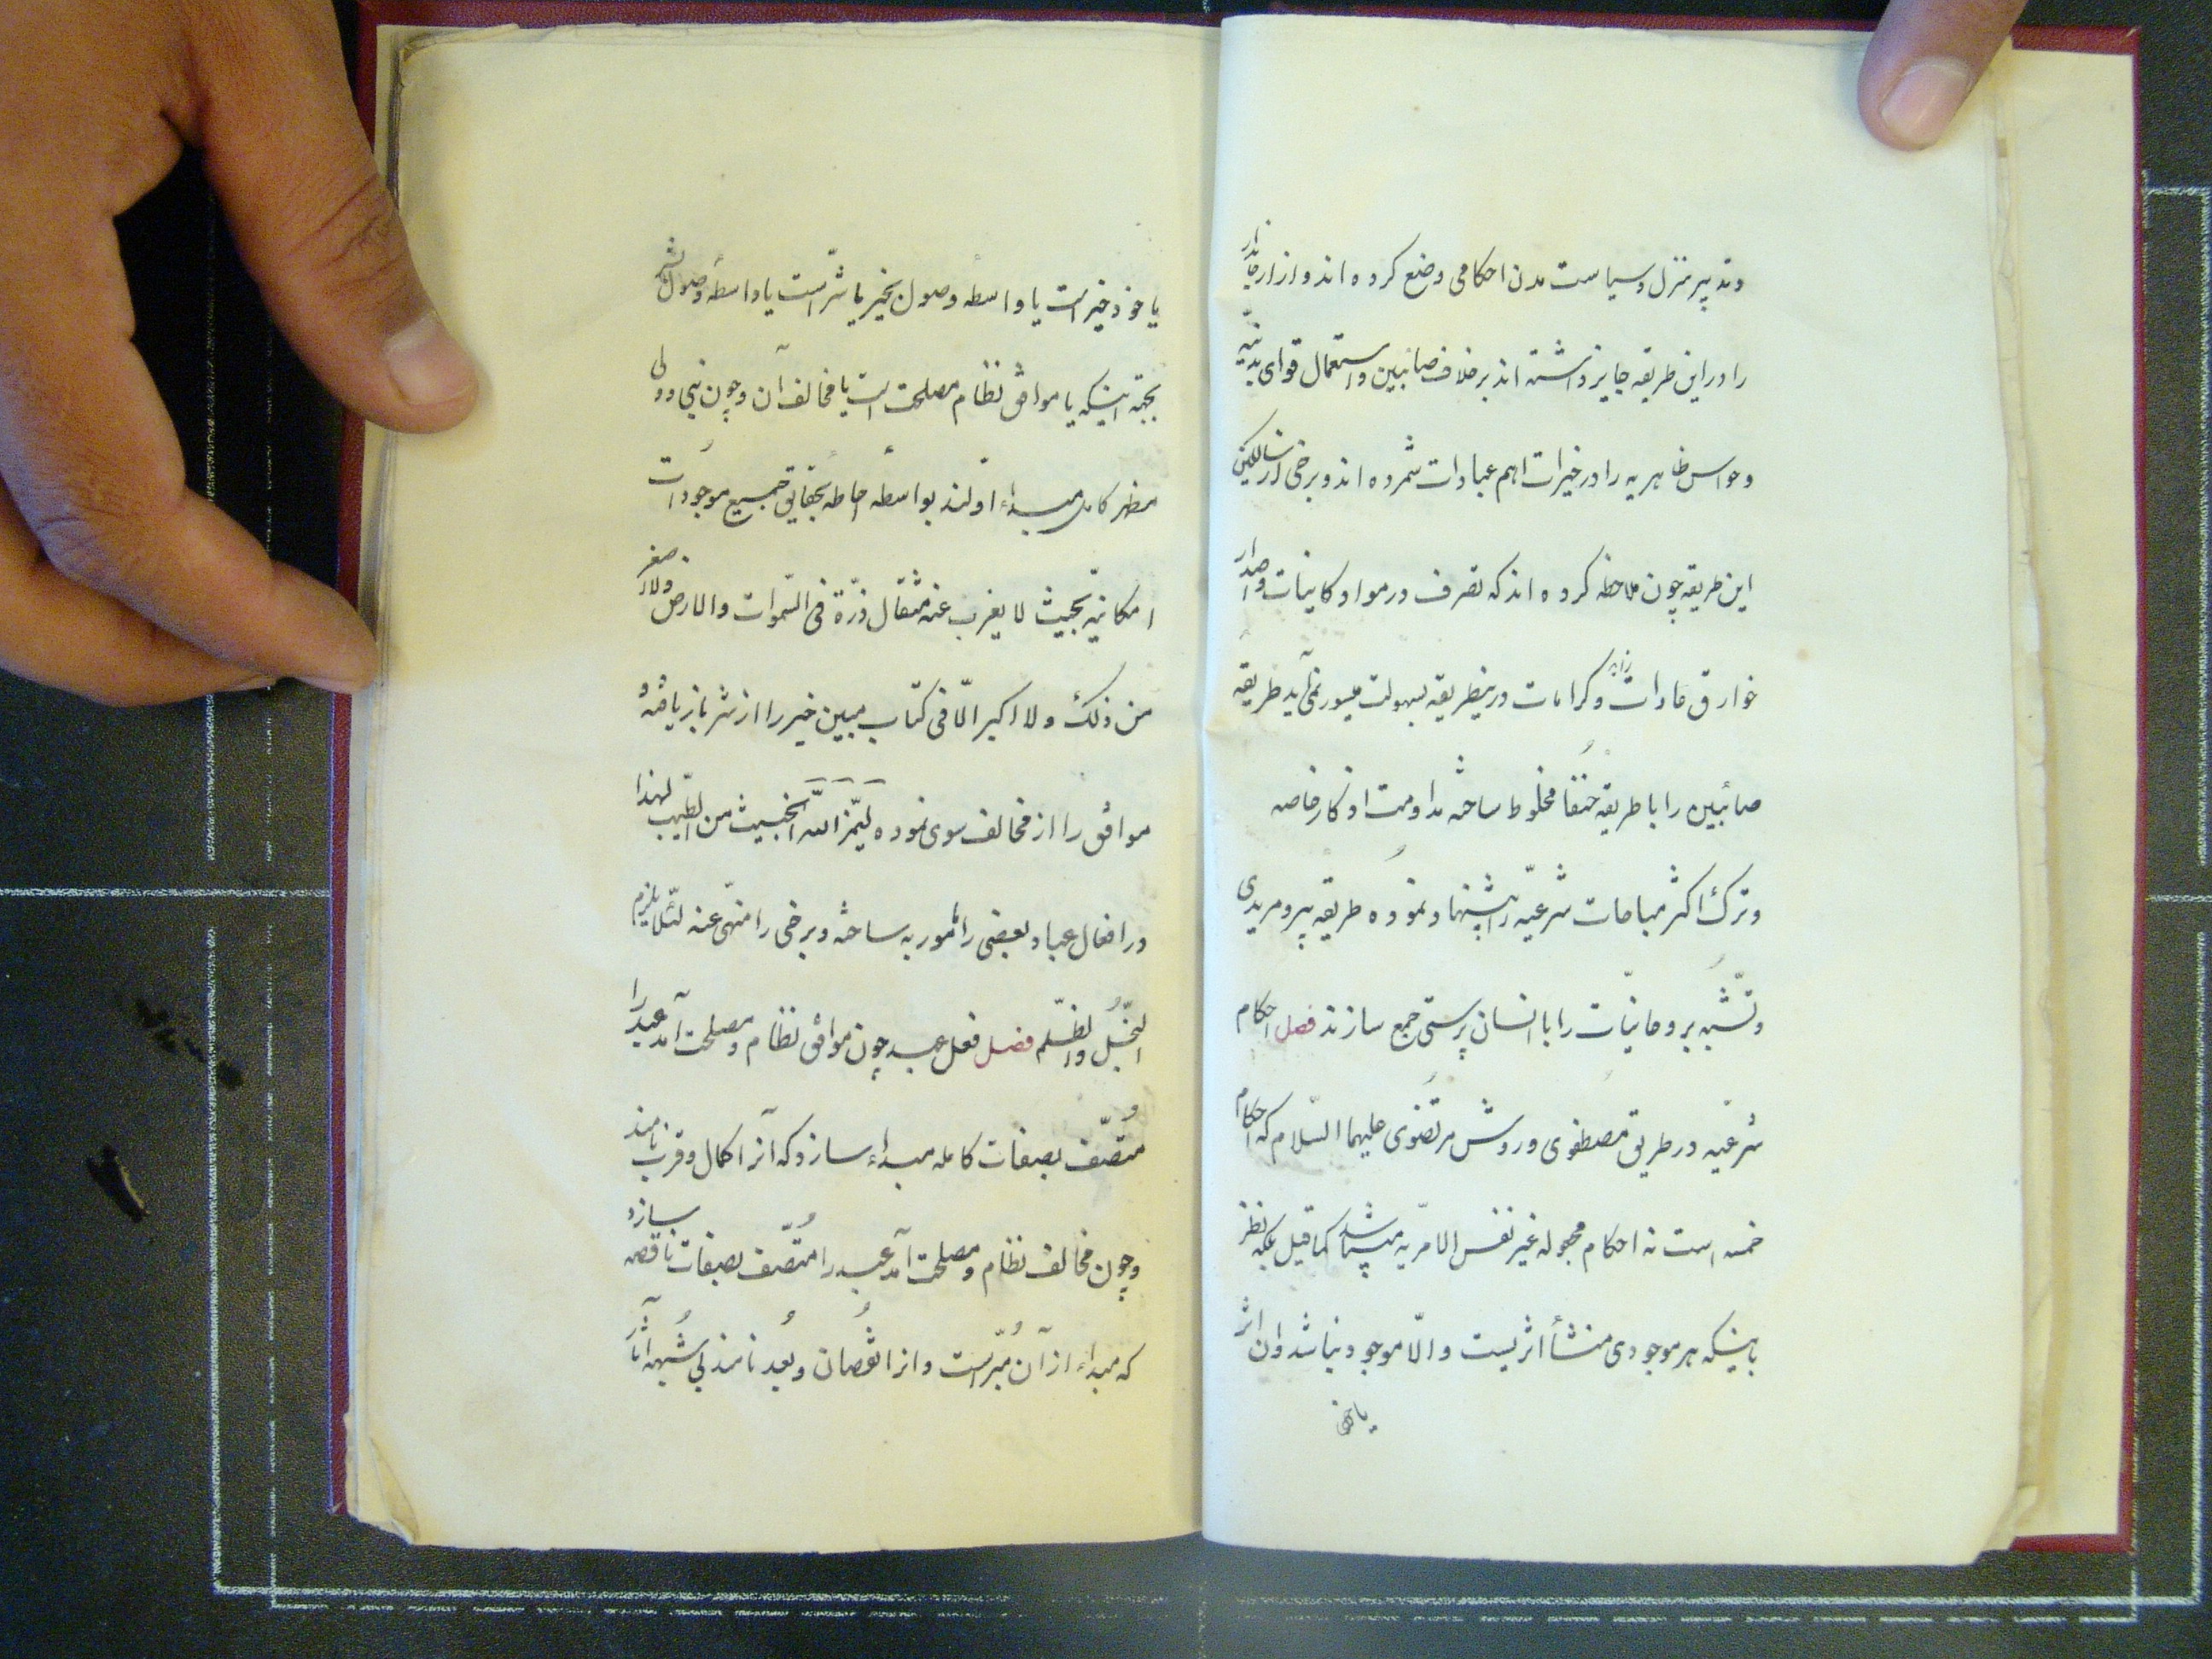 وتدبیر منزل وسیاست مدن احکامی وضع کرده اند وازار جاندار
را دراین طریقه جایز داشته اند برخلاف صائبین واستعمال قوای بدنیّه
وحواس ظاهریه را در خیرات اهم عبادات شمرده اند وبرخی از سالکین
این طریقه چون ملاحظه کرده اند که تصرف در مواد کاینات واصدار
خوارق عادات وکرامات در ینطریقه بسهولت میسور نمی آید طریقه
صائبین را با طریقه حنفا مخلوط ساخته مداومت اذکار خاصه
وترک اکثر مباحات شرعیّه را پیشنهاد نموده طریقه پیر ومریدی
وتشّبه بروحانیّات را با انسان پرستی جمع سازند فصل احکام
شرعیّه در طریق مصطفوی وروش مرتضوی علیهما السّلام که احکام
خمسه است نه احکام مجهوله غیر نفس الامریّه میباشد کما قیل بلکه نظر
باینکه هر موجودی منشأ اثریست والّا موجود نباشد وان اثر
یا خود
یا خود خیر است یا واسطه وصول بخیر یا شرّ است یا واسطه وصول بشر
بجهة اینکه یا موافق نظام مصلحت است یا مخالف آن وچون نبی وولی
مظهر کامل مبداء اوّلند بواسطه احاطه بحقایق جمیع موجودات
امکانیّه بحیث لا یغرب عنه مثقال ذرّة فی السّموات والارض ولا اصغر
من ذلک ولا اکبر الّا فی کتاب مبین خیر را از شر باز یافته و
موافق را از مخالف سوی نموده لیمّز اللّه الخبیث من الطّیب لهذا
در افعال عباد بعضی را مأمور به ساخته وبرخی را منهّی عنه لئلّا یلزم
الجَبّل والظّلم فصل فعل عبد چون موافق نظام ومصلحت آمد عبد را
مُتصّف بصفات کامله مبداء سازد که آنرا کمال وقرب نامند
وچون مخالف نظام ومصلحت آمد عبد را مُتصّف بصفات ناقصه سازد
که مبداء از آن مُبّراست وانرا نقُصان وبُعد نامند بی شُبهه آثار